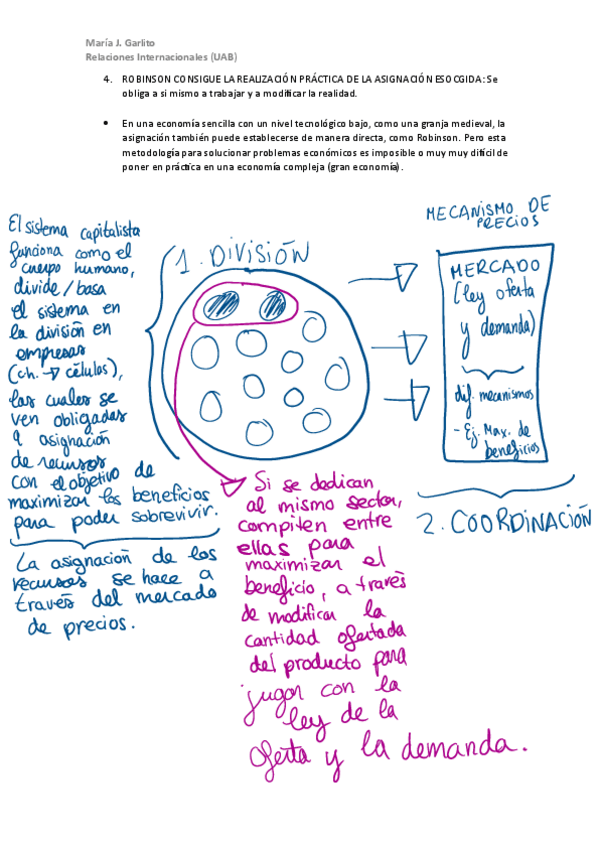 María J. Garlito
Relaciones Internacionales (UAB)
4. ROBINSON CONSIGUE LA REALIZACIÓN PRÁCTICA DE LA ASIGNACIÓN ESOCGIDA: Se
obliga a si mismo a trabajar y a modificar la realidad.
• En una economía sencilla con un nivel tecnológico bajo, como una granja medieval, la
asignación también puede establecerse de manera directa, como Robinson. Pero esta
metodología para solucionar problemas económicos es imposible o muy muy difícil de
poner en práctica en una economía compleja (gran economía).
El sistema capitalista
funciona como el
cuerpo humano,
divide/basa
el sistema en
la división en
empresas
(ch. → células),
las cuales se
ven obligadas
a asignación
de recursos
con el objetivo de
maximizar los beneficios
para poder sobrevivir.
La asignación de los
recursos se hace a
través del mercado
de precios.
1. DIVISIÓN
Si se dedican
al mismo sector,
compiten entre
ellas para
maximizar el
beneficio, a través
de modificar la
cantidad ofertada
del producto para
jugar con la
ley de la
oferta y la demanda.
MECANISMO DE
PRECIOS
MERCADO
(ley oferta
y demanda)
dif. mecanismos
- Ej. Max. de
beneficios
2. COORDINACIÓN